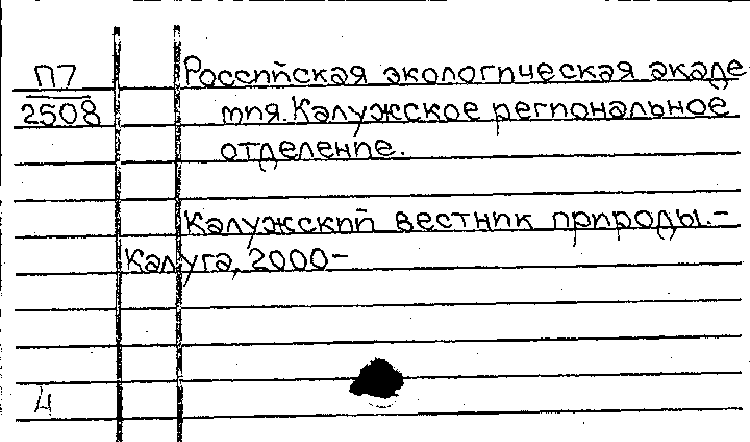 П7
2508
Российская экологическая акаде
мия. Калужское региональное
отделение.
Калужский вестник природы. –
Калуга, 2000–
4